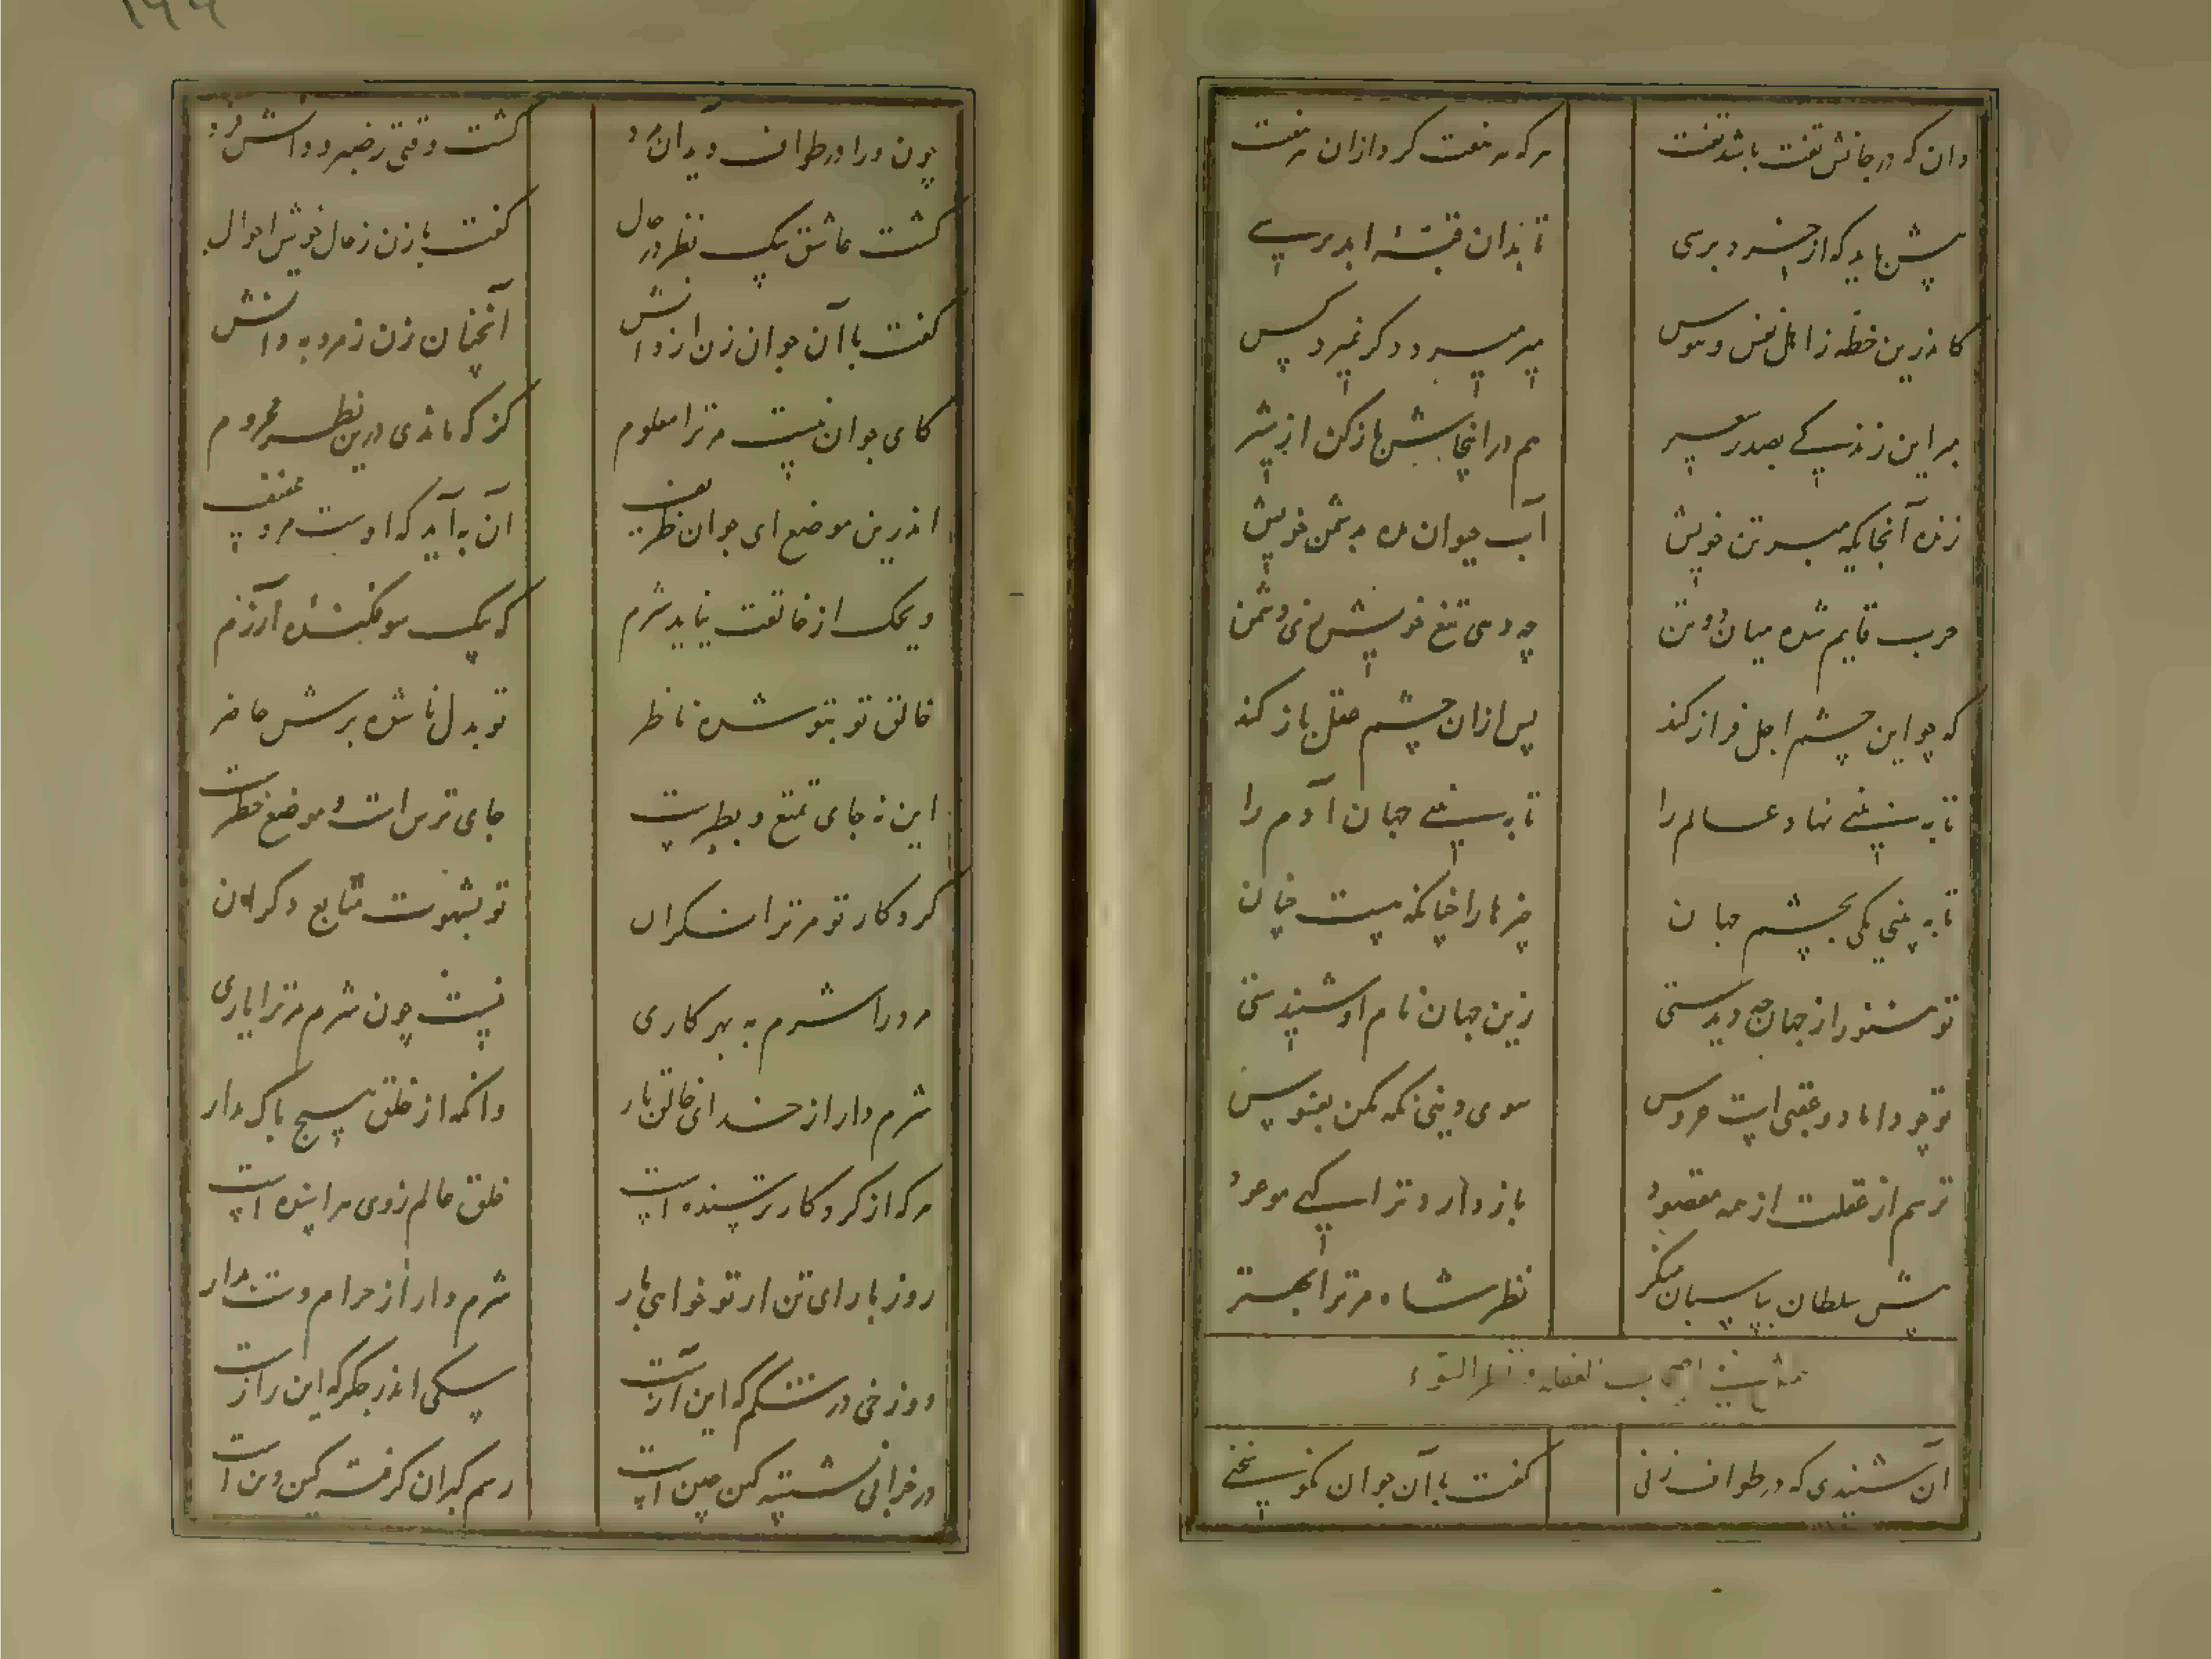 وان که در جانش تفت باشد تفت هر که بر هفت کرد ازان بر هفت
پیش باید که از خسرد برسی تا بدان قبهٔ ابد برسی
کاندرین خطه ز اهل نفس و هوس میر میرد دگر نمیرد کس
بر این زندگی بصدر هم در اینجاش باز کن از شیر
زنده آنجا که میبر تن خویش آب حیوان مده به دشمن خویش
حرب قایم شده میان دو تن چه دهی تیغ خویش زی دشمن
که چو این چشم اجل فراز کند پس ازان چشم عقل باز کند
تا به بینی نهاد عالم را تا به بینی جهان آدم را
تا به بینی یکی بچشم جهان چیزها را چنانکه هست چنان
تو هنوز از جهان چه دیدستی زین جهان نام او شنیدستی
تو چو داماد و عقبی است عروس سوی دینی نگه مکن بفسوس
ترسم از غفلت از همه مقصود باز دارد ترا موعود
پیش سلطان بپاسبان منگر نظر شاه مر ترا بهتر
آن شنیدی که در طواف زنی گفت با آن جوان نکو سخنی
چون ورا در طواف دید آن مرد گشت وقتی ز خیر و دانش فرد
گشت عاشق بیک نظر در حال گفت با زن ز حال خویش احوال
گفت با آن جوان زن از دانش آنچنان زن ز مرد به دانش
کای جوان نیست مر ترا معلوم کز که ماندی درین نظر محروم
اندرین موضع ای جوان ظریف آن به آید که اوست مرد عفیف
ویحک از خالقت نیاید شرم که بیک سو فکندهٔ آزرم
خالق تو بتو شده ناظر تو بدل ناشده برش حاضر
این نه جای تمتع و بطرست جای ترس است و موضع خطرست
کردکار تو مر ترا نگران تو بشهوت متابع دگران
مرد را شرم به بهر کاری نیست چون شرم مر ترا یاری
شرم دار از خدای خالق بار وانکه از خلق هیچ باک مدار
هر که از کردکار ترسنده است خلق عالم زوی هراسنده است
روز بار ای تن ار تو خواهی بار شرم دار از حرام و دست بدار
دوزخی در شکم که این آزست سگی اندر جگر که این رازست
در خرابی نشسته کین چین است رسم گبران گرفته کین دین است